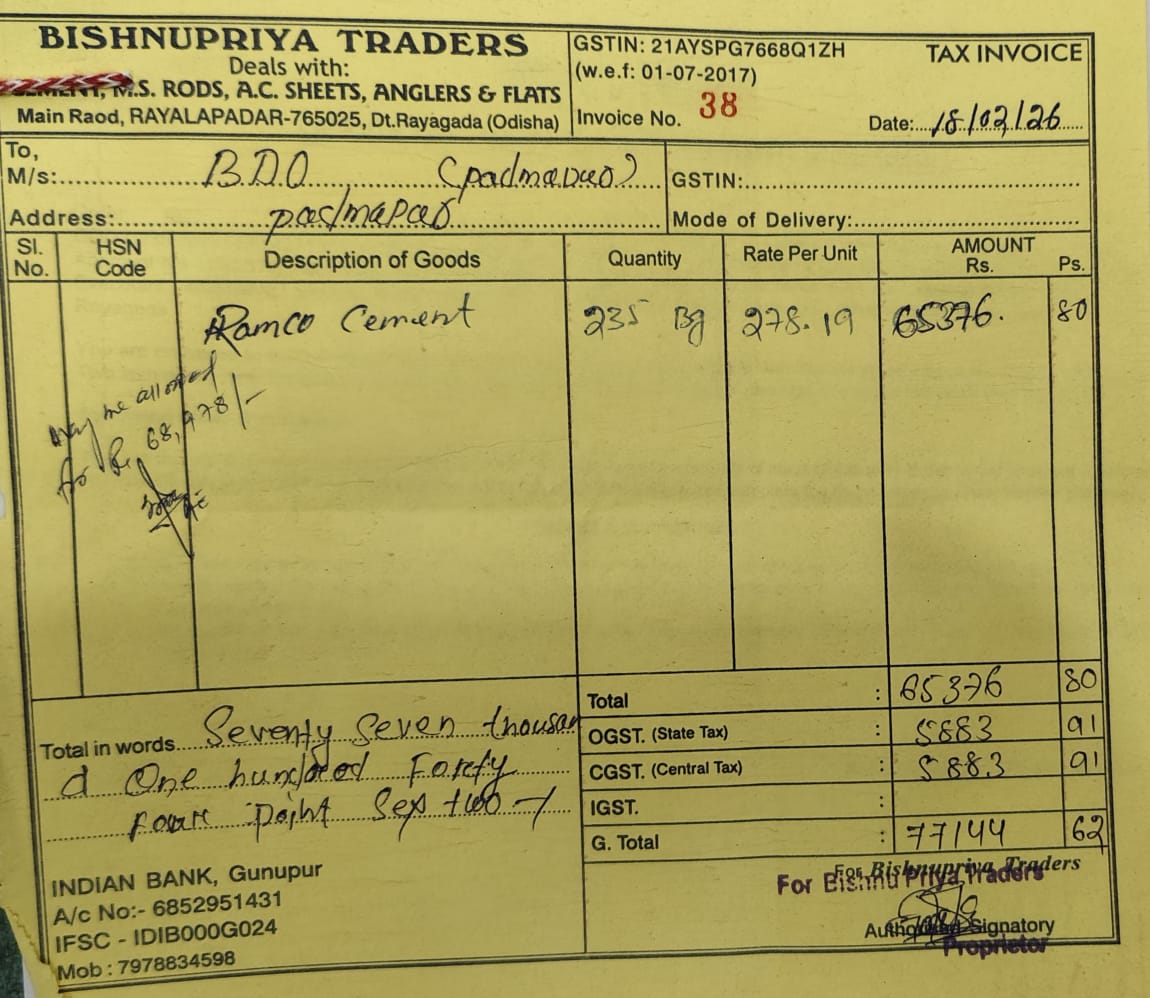 BISHNUPRIYA TRADERS
Deals with:
CEMENT, M.S. RODS, A.C. SHEETS, ANGLERS & FLATS
Main Raod, RAYALAPADAR-765025, Dt.Rayagada (Odisha)
GSTIN: 21AYSPG7668Q1ZH
(w.e.f: 01-07-2017)
TAX INVOICE
Invoice No. 38
Date: 18/02/26
To,
M/s: B.D.O (padmapur)
GSTIN:
Address: padmapur
Mode of Delivery:
Sl. No. HSN Code Description of Goods Quantity Rate Per Unit AMOUNT Rs. Ps.
Ramco Cement 235 Bg 278.19 65376. 80
May be allowed
for Rs 68,978/-
Total : 65376 80
OGST. (State Tax) : 5883 91
CGST. (Central Tax) : 5883 91
IGST. :
G. Total : 77144 62
Total in words Seventy Seven thousan
d One hundred Forty
Four Point Sex two -/
INDIAN BANK, Gunupur
A/c No:- 6852951431
IFSC - IDIB000G024
Mob : 7978834598
For Bishnupriya Traders
For Bishnu Priya Traders
Authorised Signatory
Proprietor